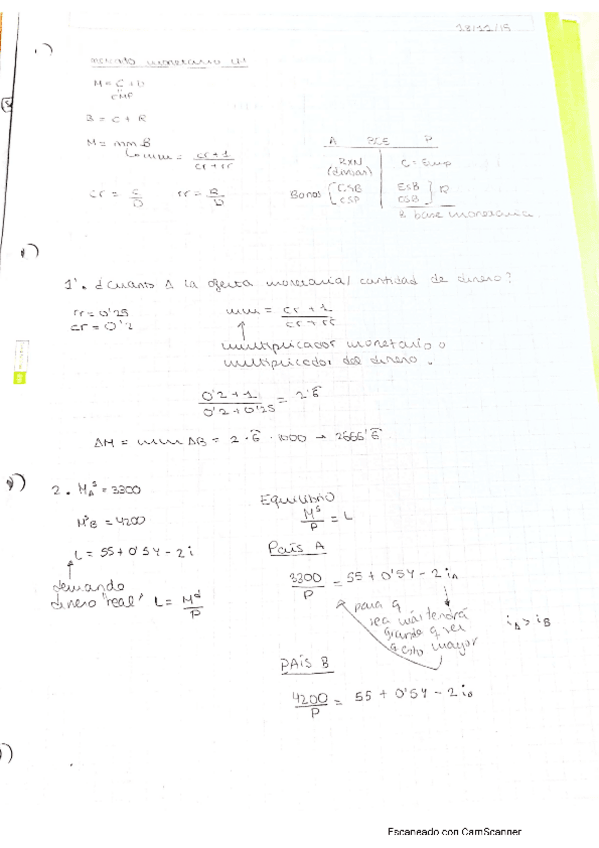 23/12/15
1)
mercado monetario
M = C + D
EMP
B = C + R
M = mm B
mm = cr + 1 / cr + rr
cr = C / D rr = R / D
A BCE P
RXN (divisas) C = Emp
Bonos CSB ESB R
CSP OSB
B base monetaria
1'. ¿Cuánto Δ la oferta monetaria / cantidad de dinero?
rr = 0'25
cr = 0'2
mm = cr + 1 / cr + rr
multiplicador monetario o
multiplicador del dinero.
0'2 + 1 / 0'2 + 0'25 = 2'6
ΔM = mm ΔB = 2'6 · 1000 → 2666'6
2. M^s_A = 3300
M^s_B = 4200
L = 55 + 0'5Y - 2i
demanda
dinero "real" L = M^d / P
Equilibrio
M^s / P = L
País A
3300 / P = 55 + 0'5Y - 2 i_A
para q
sea más tendrá
q ser
esto mayor
i_A > i_B
PAÍS B
4200 / P = 55 + 0'5Y - 2 i_B
Escaneado con CamScanner